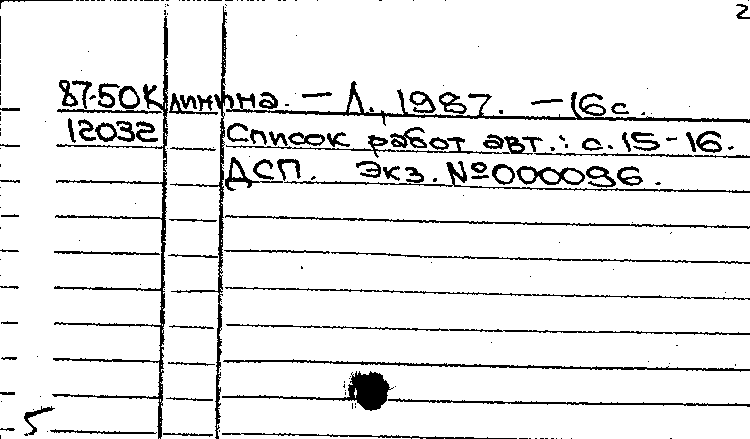 2
87-50К линина. — Л., 1987. — 16 с.
12032 Список работ авт.: с. 15-16.
ДСП. Экз. №000096.
5